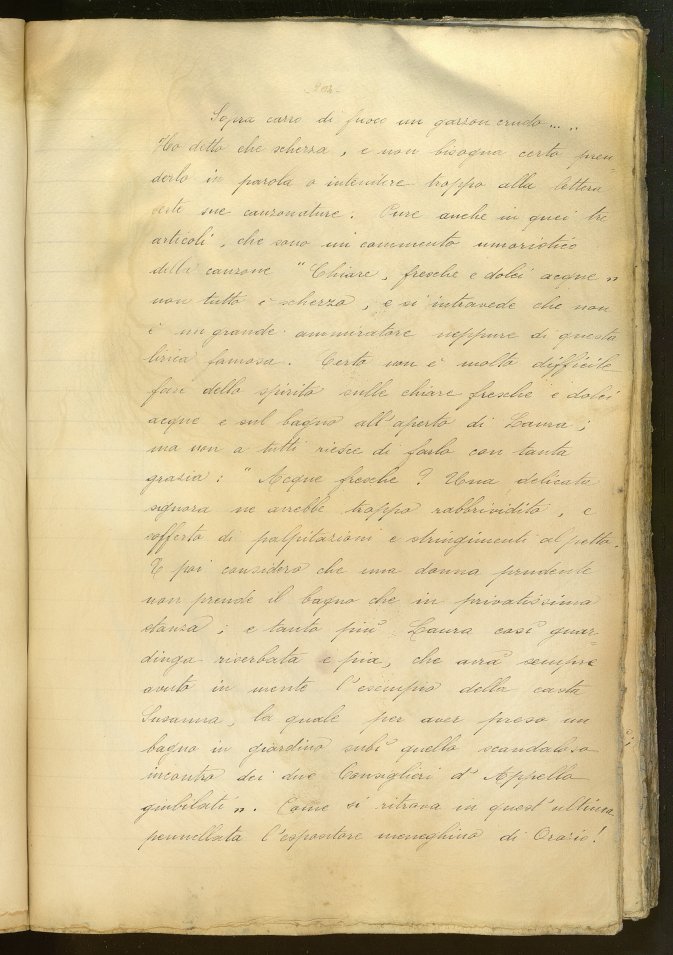 Sopra carro di fuoco un garzon crudo.....
Ho ditto che scherza, e non bisogna certo pren-
derlo in parola o intendere troppo alla lettera
certe sue canzonature. Pure anche in quei tre
articoli, che sono un commento umoristico
della canzone "Chiare, fresche e dolci acque"
non tutto è scherzo, e si intravede che non
è un grande ammiratore neppure di questa
lirica famosa. Certo non è molto difficile
fare dello spirito sulle chiare fresche e dolci
acque e sul bagno all'aperto di Laura;
ma non a tutti riesce di farlo con tanta
grazia: "Acque fresche? Una delicata
signora ne avrebbe troppo rabbrividito, e
sofferto di palpitazioni e stringimenti al petto.
E poi considero che una donna prudente
non prende il bagno che in privatissima
stanza; e tanto più Laura così guar-
dinga riserbata e pia, che avrà sempre
avuto in mente l'esempio della casta
Susanna, la quale per aver preso un
bagno in giardino subì quello scandaloso
incontro dei due Consiglieri d'Appello
giubilati". Come si ritrova in quest'ultima
pennellata l'espositore meneghino di Orazio!